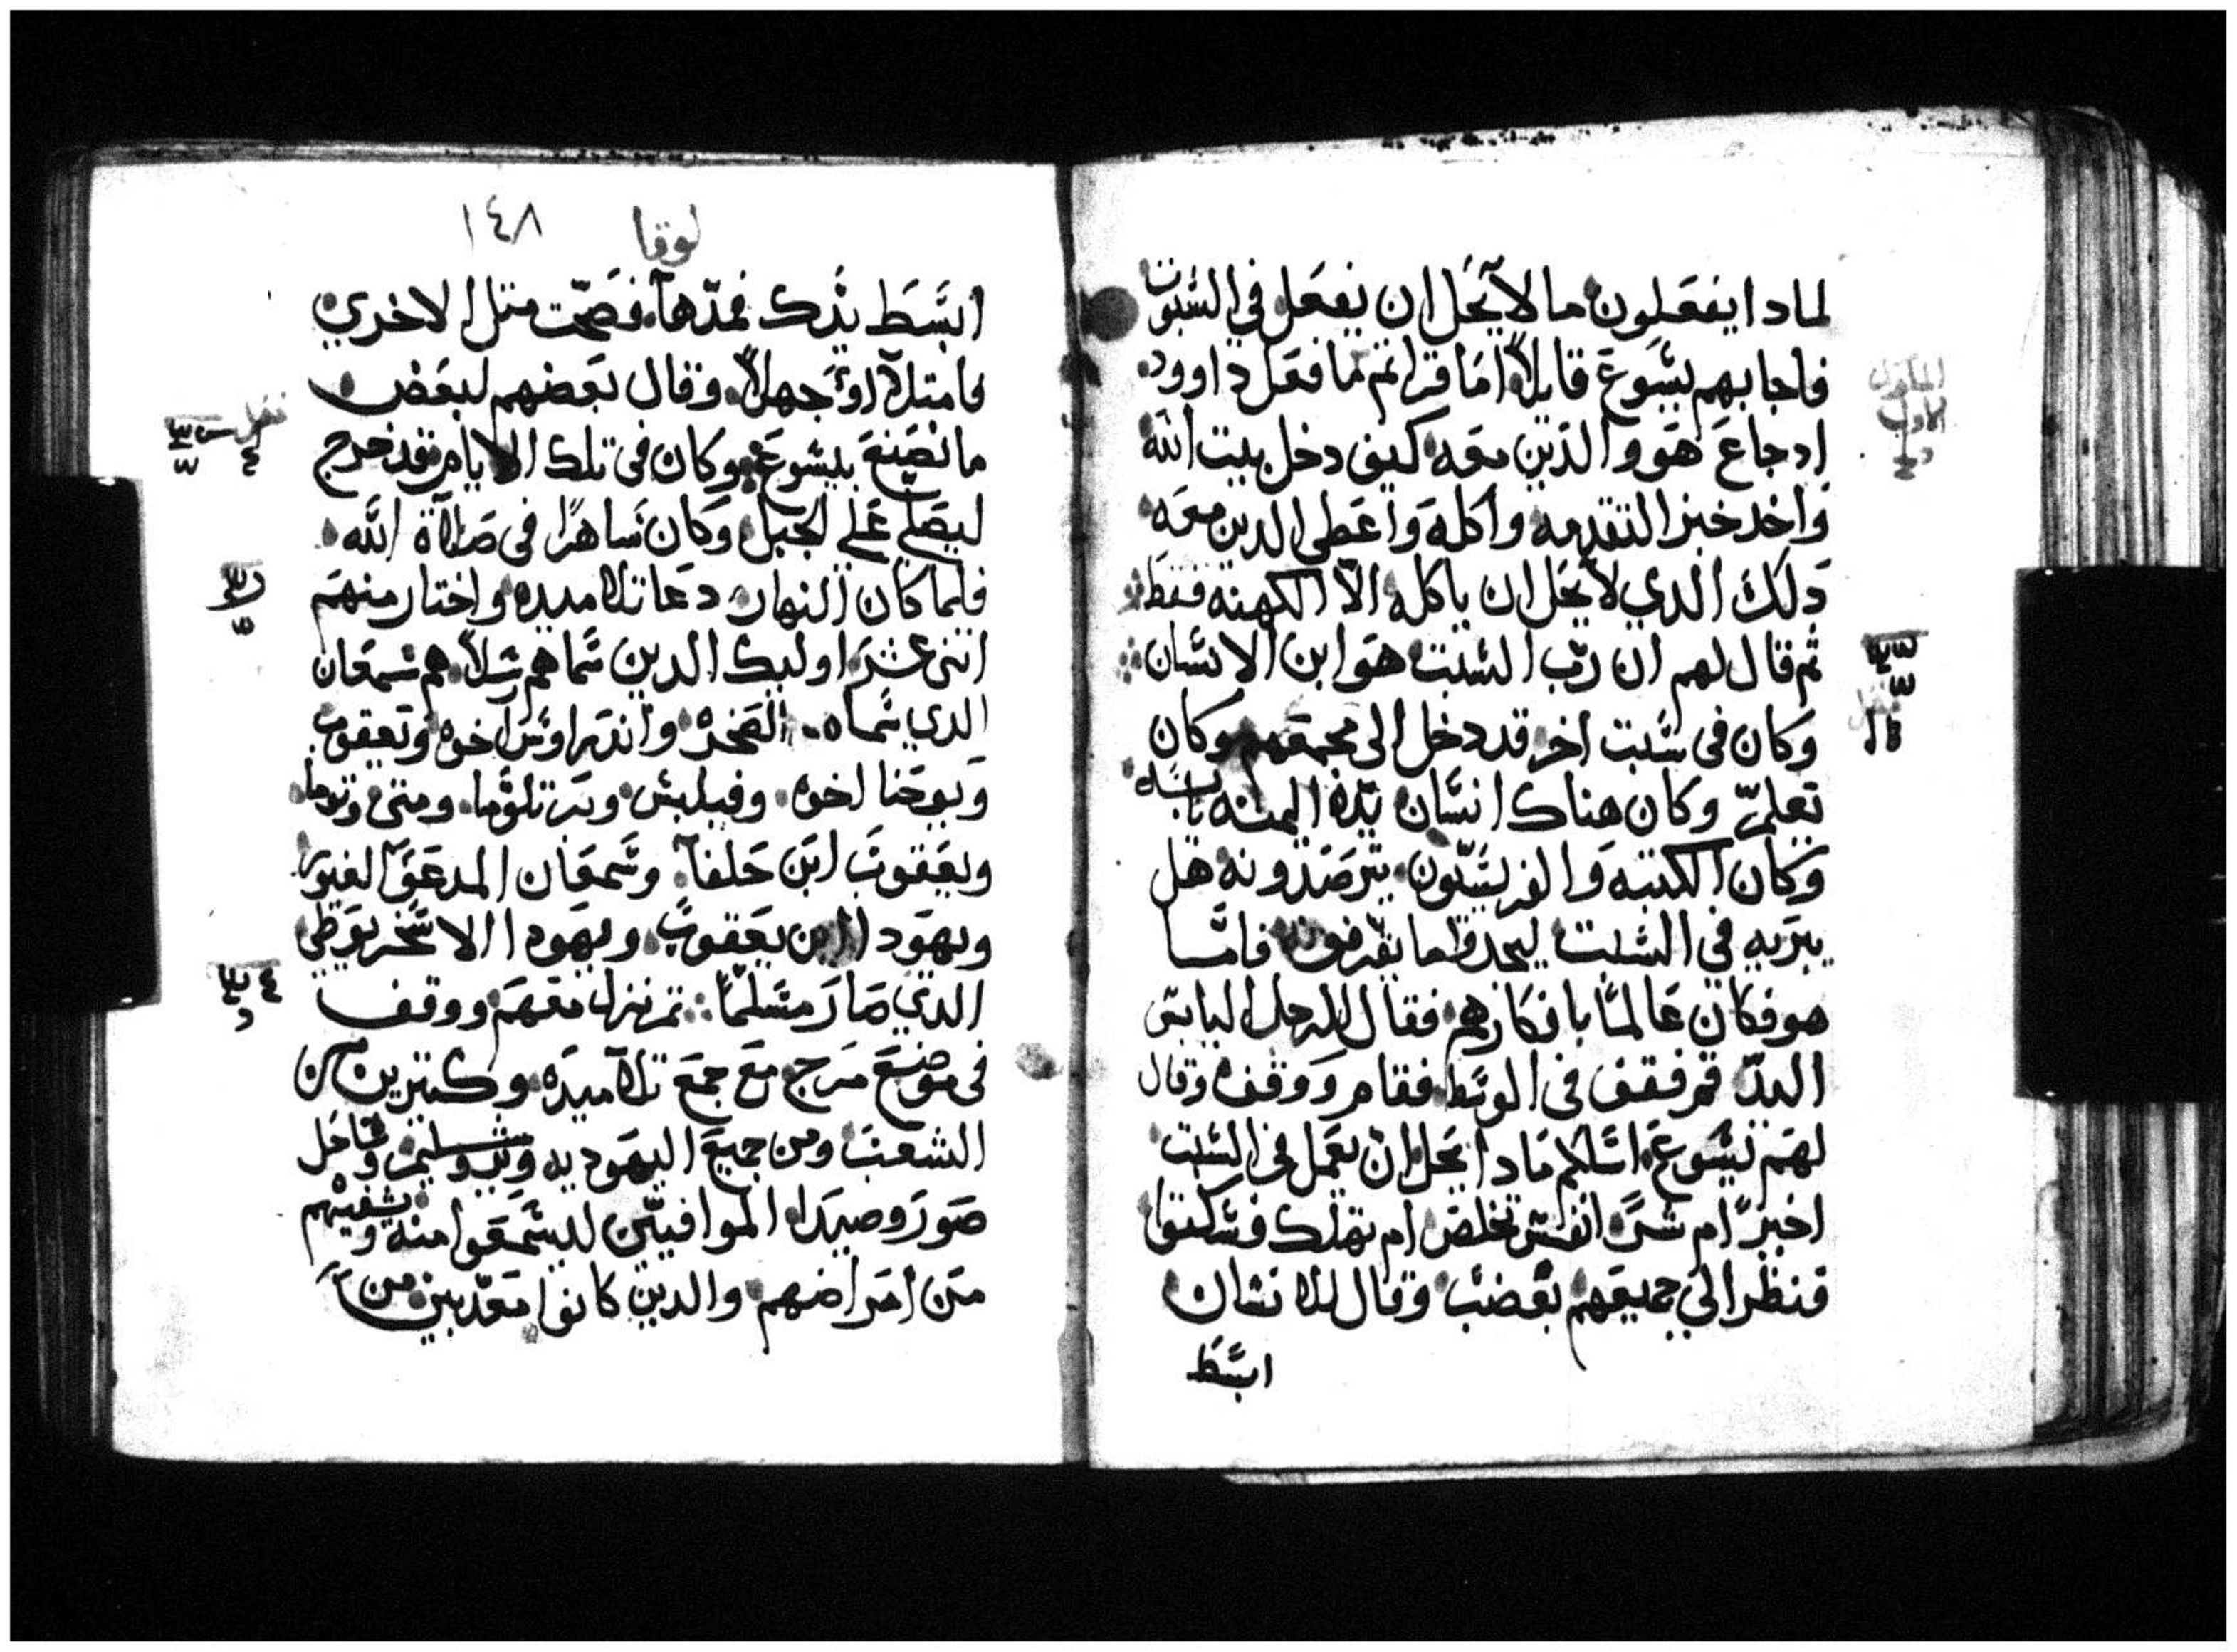 لمادا يفعلون ما لا يحل ان يفعل في السبوت
فاجابهم يسوع قايلاً اما قراتم ما فعل داوود
ادجاع هو والدين معه كيف دخل بيت الله
واخد خبز التقدمه واكله واعطى الدين معه
دلك الدي لا يحل ان ياكله الا الكهنه فقط
تم قال لهم ان رب السبت هو ابن الانسان
وكان في سبت اخر قد دخل الى مجمعهم وكان
يعلم وكان هناك انسان يده اليمنه يابسه
وكان الكتبه والفريسيون يترصدونه هل
يبريه في السبت ليجدوا ما يقرفونه فاما
هو فكان عالمًا بافكارهم فقال للرجل اليابس
اليد قم فقف في الوسط فقام ووقف وقال
لهم يسوع اسالكم مادا يحل ان يعمل في السبت
اخيرً ام شرً انفس تخلص ام تهلك فسكتوا
فنظر الى جميعهم بغضب وقال للانسان
ابسط
لوقا ١٤٨
ابسط يدك فمدها فصحت متل الاخري
فامتلاوا جهلاً وقال بعضهم لبعض
ما نصنع بيسوع وكان في تلك الايام قد خرج
ليصلي على الجبل وكان ساهرًا في صلاة الله
فلما كان النهار دعا تلاميده واختار منهم
اتنى عشر اوليك الدين سماهم رسلاً هم سمعان
الدي سماه الصخره واندراوس اخوه ويعقوب
ويوحنا اخوه وفيلبس وبرتلوما ومتى وتوما
ويعقوب ابن حلفا وسمعان المدعو الغيور
ويهودا ابن يعقوب ويهودا الاسخريوطي
الدي صار مسلمًا تم نزل معهم ووقف
في موضع مرج مع جمع تلاميده وكتيرين من
الشعب ومن جميع اليهوديه ويروشليم وساحل
صور وصيدا الموافيين ليسمعوا منه ويشفيهم
من امراضهم والدين كانوا معدبين من